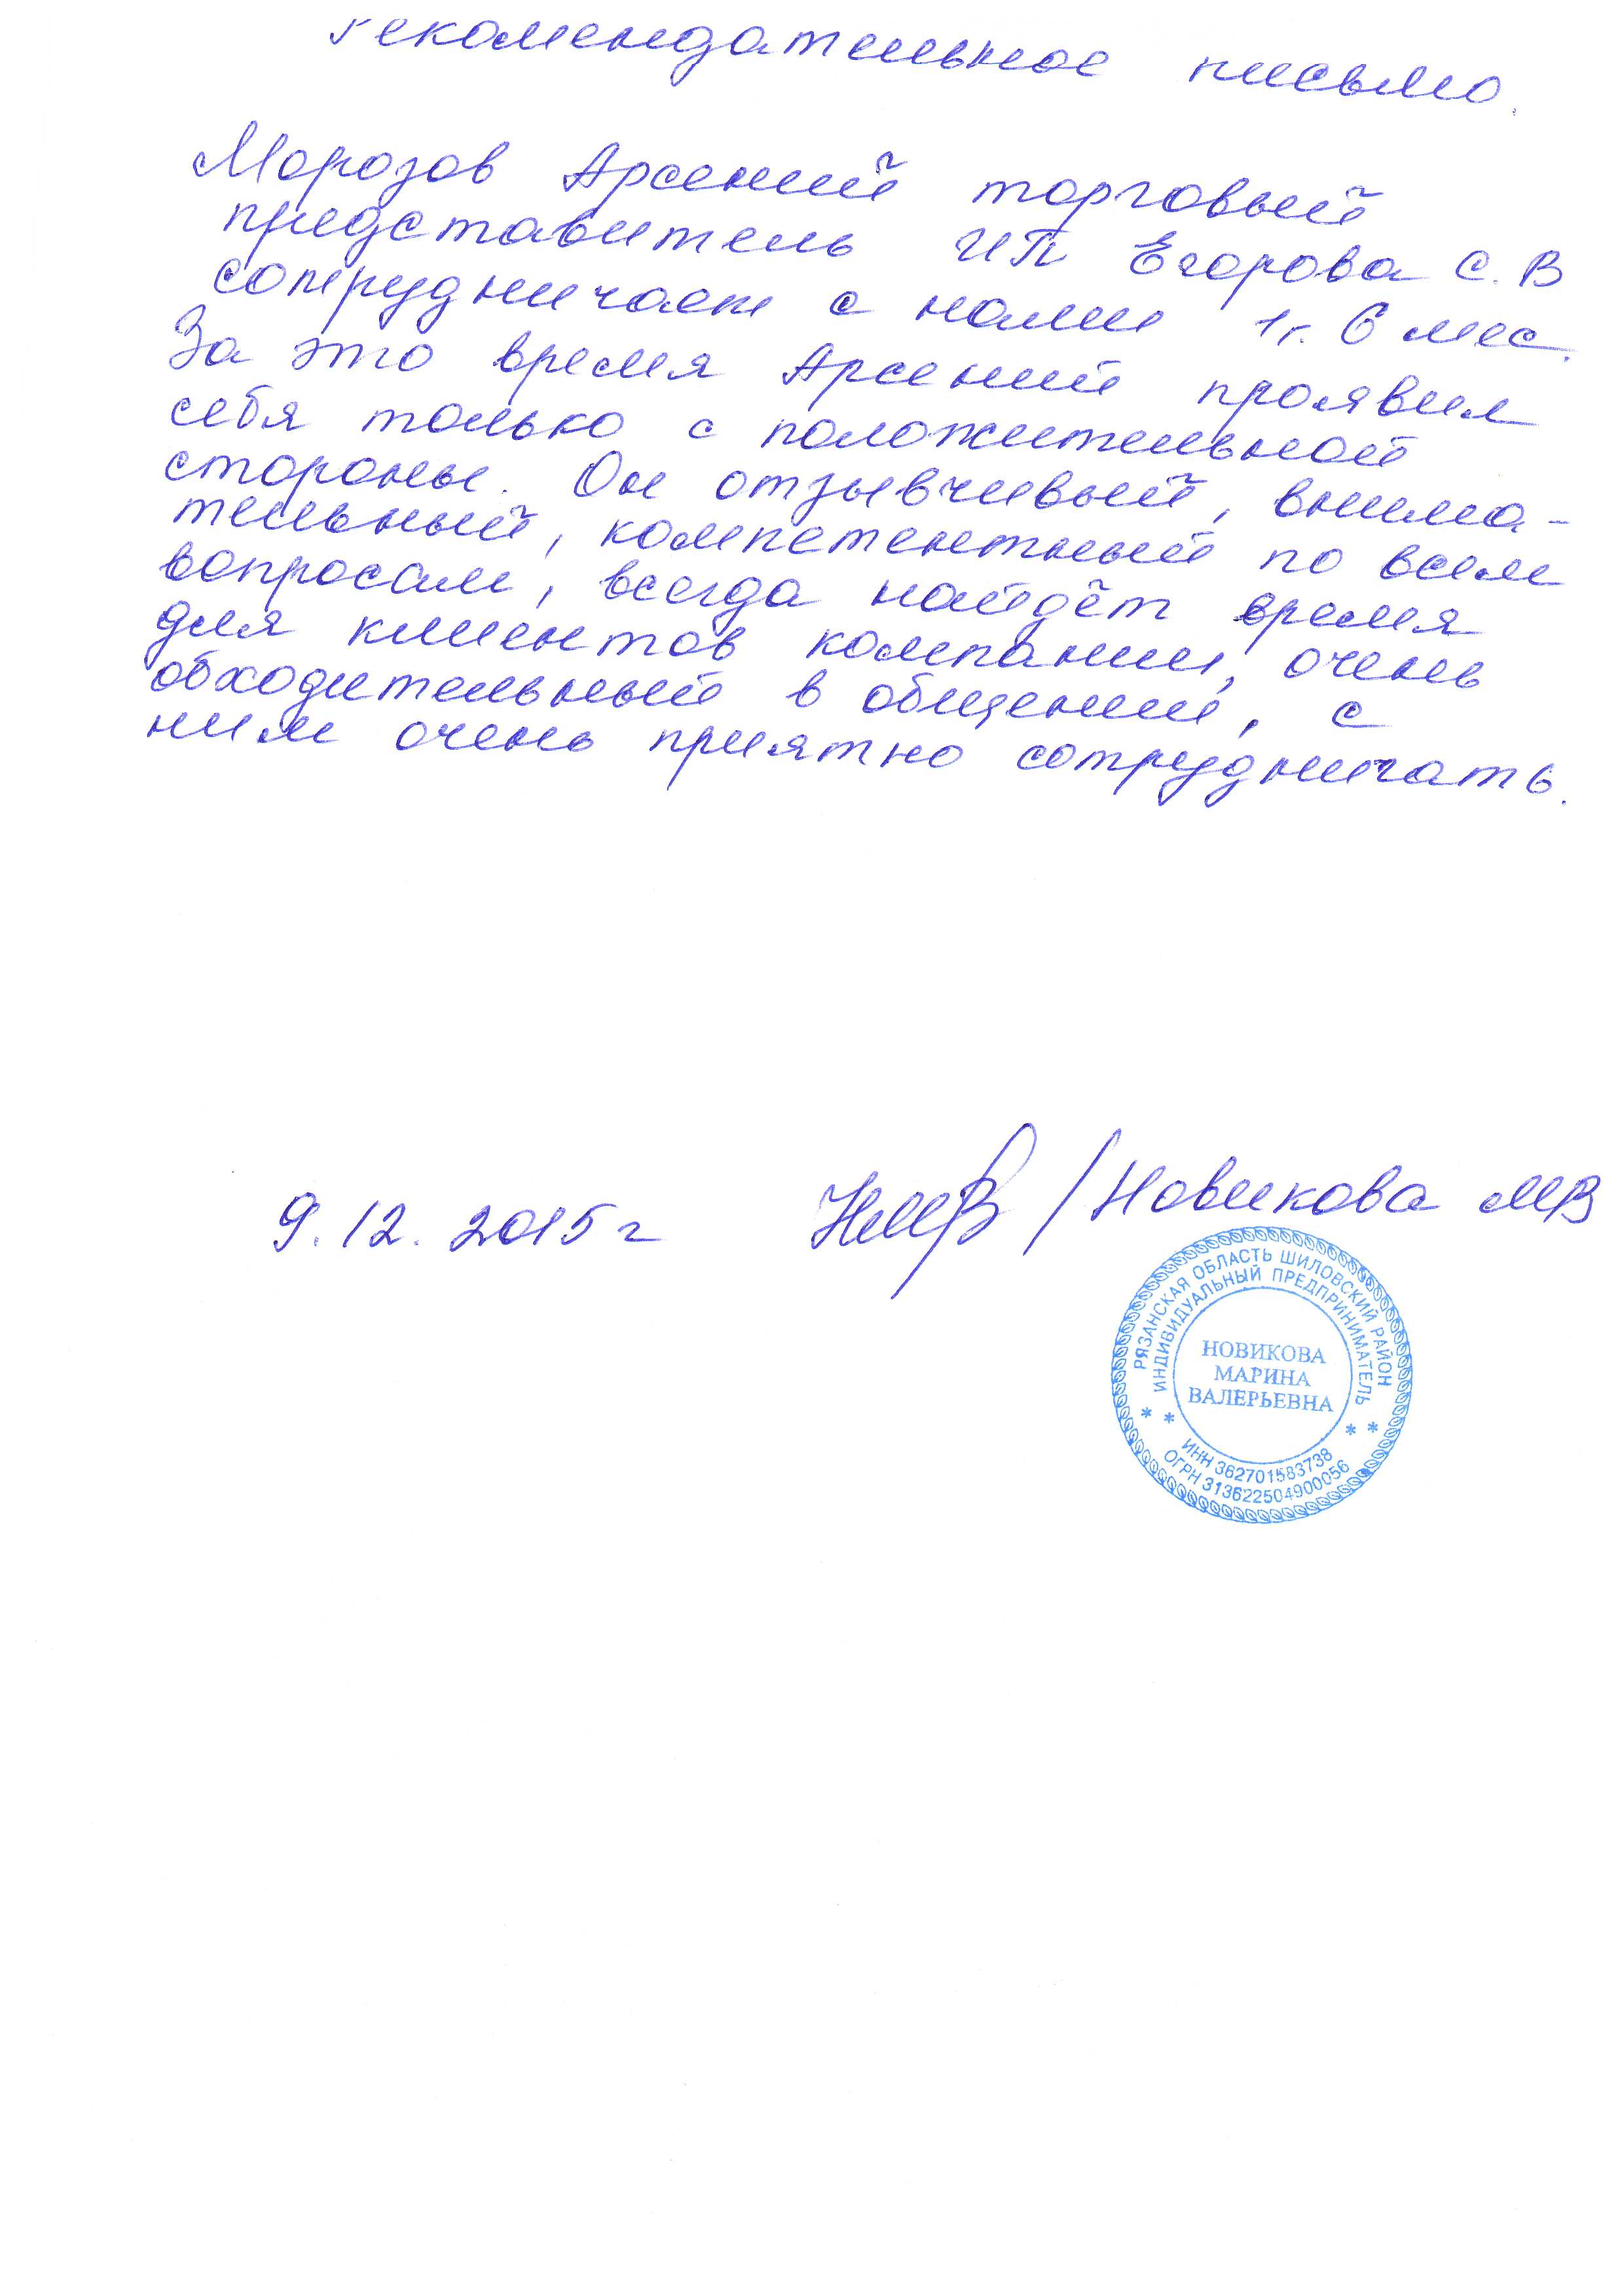 Рекомендательное письмо.
Морозов Арсений торговый
представитель ИП Егорова С.В
сотрудничает с нами 1г. 6 мес.
За это время Арсений проявил
себя только с положительной
стороны. Он отзывчивый, внима-
тельный, компетентный по всем
вопросам, всегда найдёт время
для клиентов компании, очень
обходительный в общении, с
ним очень приятно сотрудничать.
9.12.2015 г НМВ /Новикова МВ
РЯЗАНСКАЯ ОБЛАСТЬ ШИЛОВСКИЙ РАЙОН
ИНДИВИДУАЛЬНЫЙ ПРЕДПРИНИМАТЕЛЬ
НОВИКОВА
МАРИНА
ВАЛЕРЬЕВНА
* * * *
ИНН 362701583738
ОГРН 313622504900056